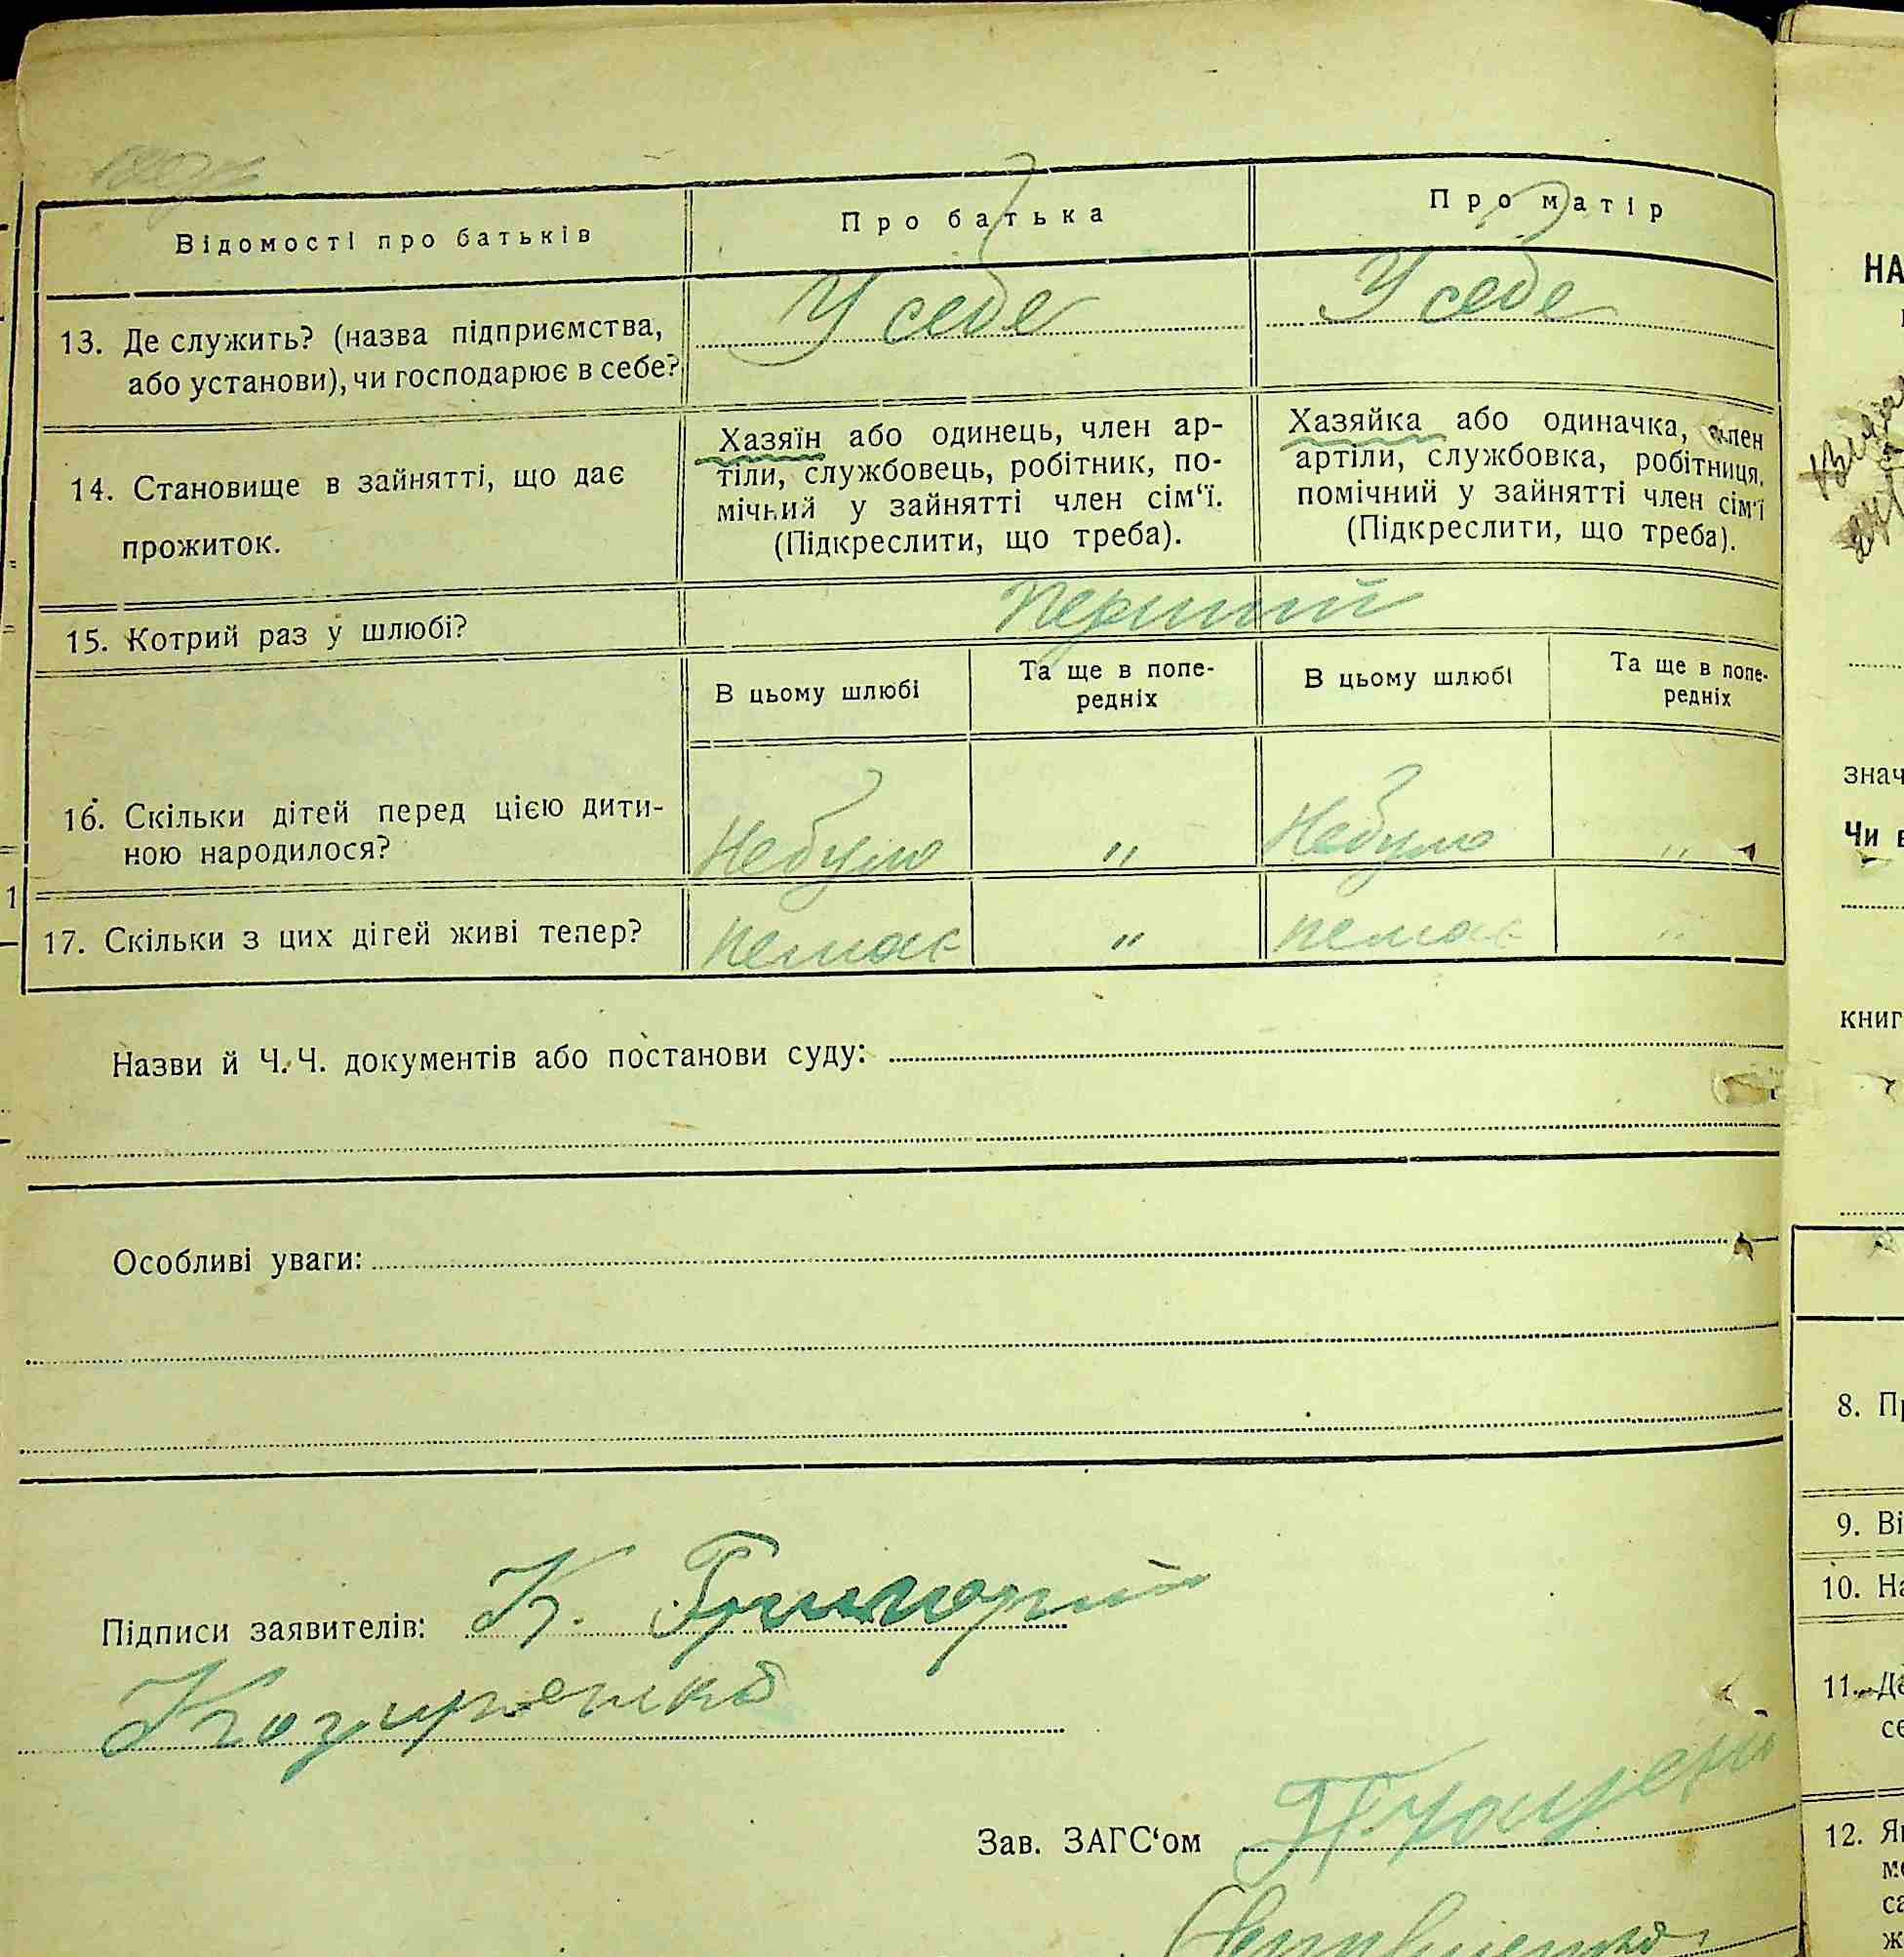 Відомості про батьків
Про батька
Про матір
13. Де служить? (назва підприємства,
або установи), чи господарює в себе?
У себе
У себе
14. Становище в зайнятті, що дає
прожиток.
Хазяїн або одинець, член ар-
тіли, службовець, робітник, по-
мічний у зайнятті член сім‘ї.
(Підкреслити, що треба).
Хазяйка або одиначка, член
артіли, службовка, робітниця,
помічний у зайнятті член сім‘ї
(Підкреслити, що треба).
15. Котрий раз у шлюбі?
перший
В цьому шлюбі
Та ще в попе-
редніх
В цьому шлюбі
Та ще в попе-
редніх
16. Скільки дітей перед цією дити-
ною народилося?
Небуло
"
Небуло
"
17. Скільки з цих дітей живі тепер?
немає
"
немає
"
Назви й Ч.Ч. документів або постанови суду:
Особливі уваги:
Підписи заявителів: К. Григорий
Зав. ЗАГС‘ом
НА
знач
Чи в
книг
8. Пр
9. Ві
10. На
11. Де
се
12. Як
мо
са
ж
1